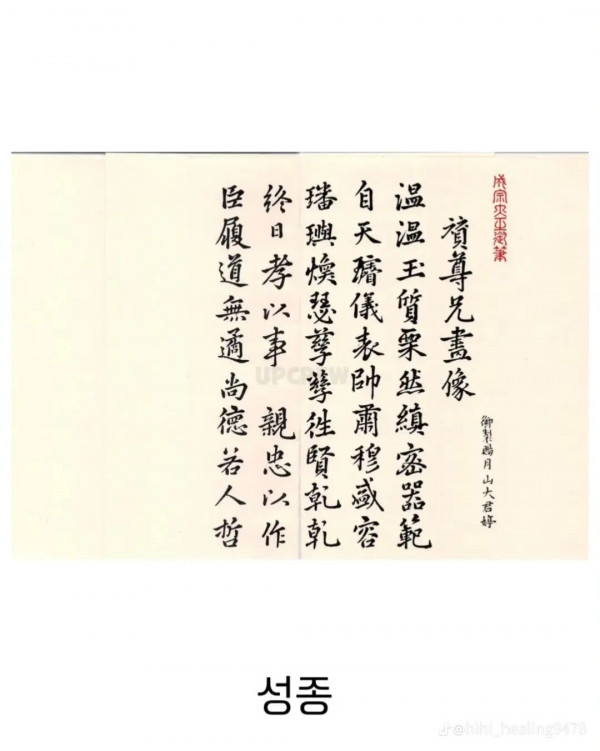 成宗大王御筆
賛尊兄畫像
御製賜月山大君婷
温温玉質栗然縝密器範
自天璿儀表帥肅穆盛容
璠璵煥瑟孳孳徃賢乾乾
終日孝以事 親忠以作
臣履道無遹尚德若人哲
성종
@hihi_healing9478